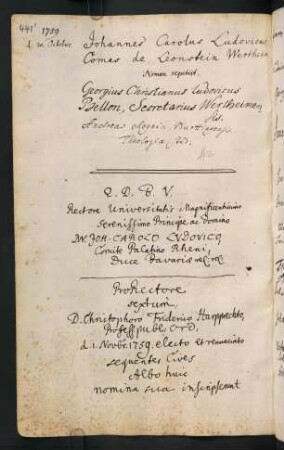 441'
1759
d. 20 Octobr.
Johannes Carolus Ludovicus
Comes de Leonstein Wertheim
Nomen repetiit.
Georgius Christianus Ludovicus
Bellon, Secretarius Wertheimen
sis.
Andreas
Theologiæ
Q. D. B. V.
Rectore Universitatis Magnificentissimo
Serenissimo Principe ac Domino
JOH. CAROLO LVDOVICO
Comite Palatino Rheni,
Duce Bavariæ rel. rel.
ProRectore
sextum,
D. Christophoro Friderico Harpprechto,
Profess. publ. ord.
d. 1. Novbr. 1759. electo et renunciato
sequentes Cives
Albo huic
nomina sua inscripserunt